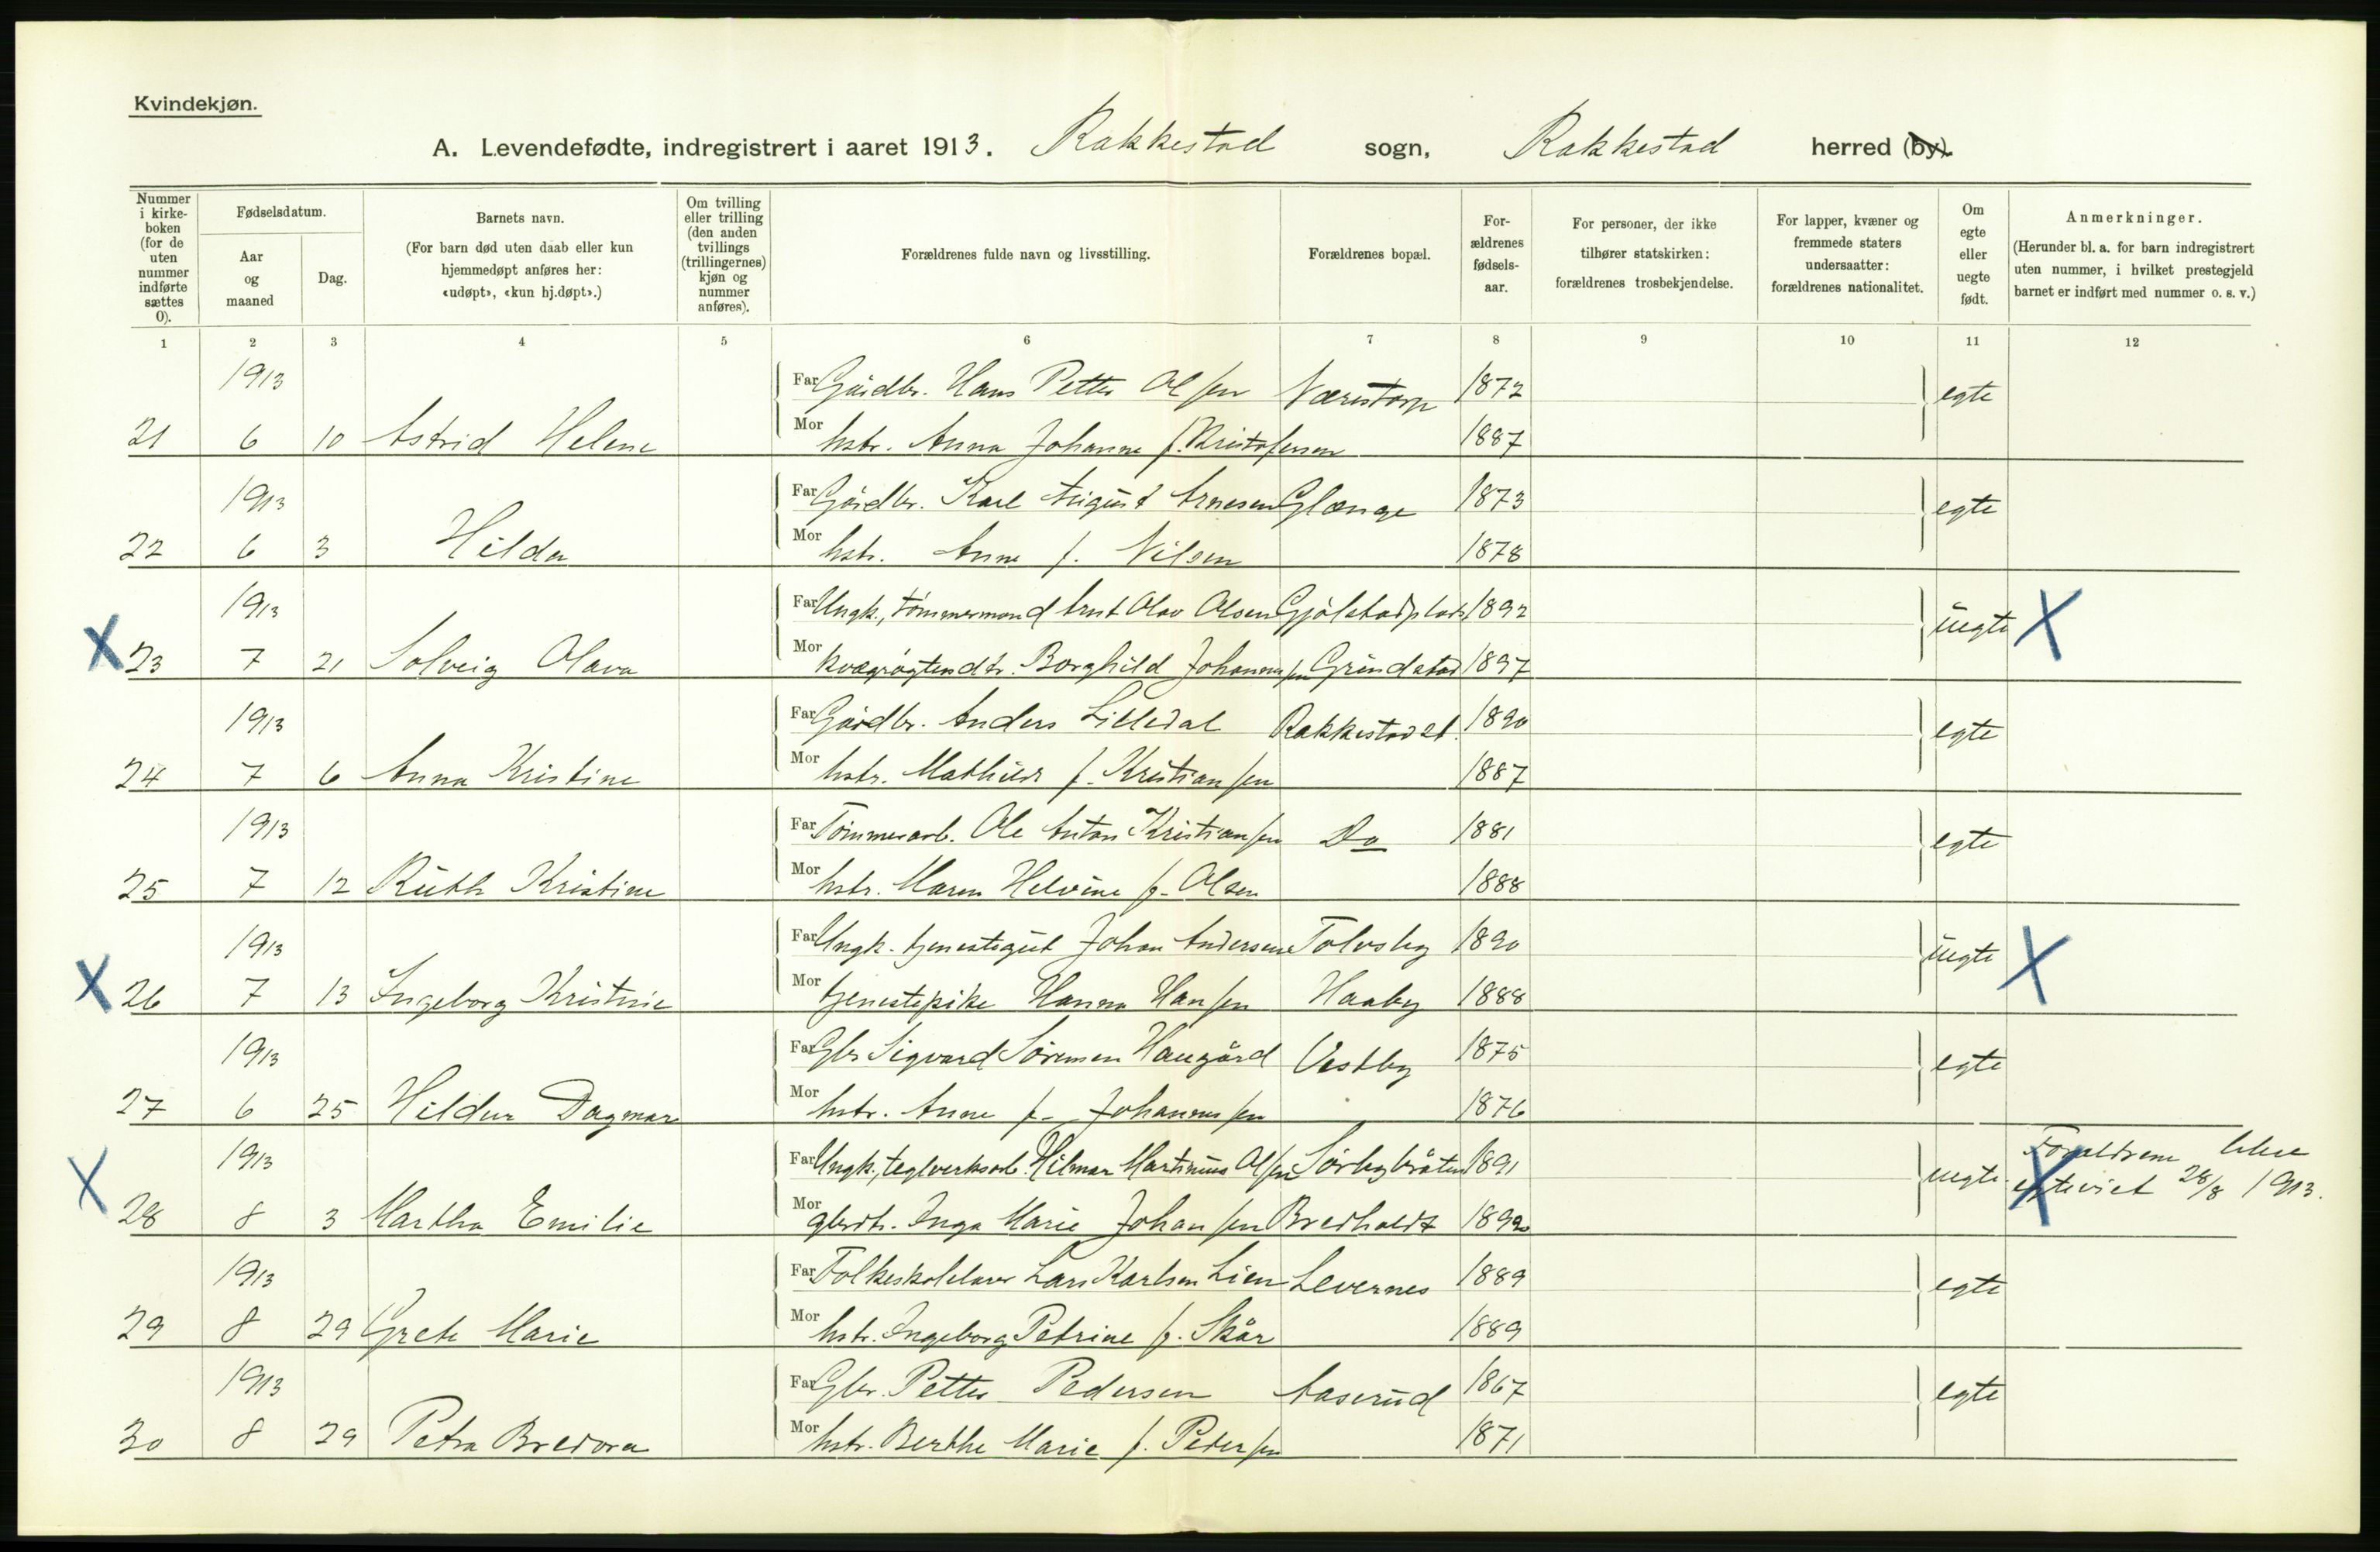 Kvindekjøn.
A. Levendefødte, indregistrert i aaret 1913. Rakkestad sogn, Rakkestad herred (by).
Nummer i kirke-boken (for de uten nummer indførte sættes 0).
Fødselsdatum.
Aar og maaned
Dag.
Barnets navn.
(For barn død uten daab eller kun hjemmedøpt anføres her: «udøpt», «kun hj.døpt».)
Om tvilling eller trilling (den anden tvillings (trillingernes) kjøn og nummer anføres).
Forældrenes fulde navn og livsstilling.
Forældrenes bopæl.
For-ældrenes fødsels-aar.
For personer, der ikke tilhører statskirken: forældrenes trosbekjendelse.
For lapper, kvæner og fremmede staters undersaatter: forældrenes nationalitet.
Om egte eller uegte født.
Anmerkninger.
(Herunder bl. a. for barn indregistrert uten nummer, i hvilket prestegjeld barnet er indført med nummer o. s. v.)
1 2 3 4 5 6 7 8 9 10 11 12
1913 Far Gårdbr. Hans Petter Olsen Nærestorp 1872 egte
21 6 10 Astrid Helene Mor hstr. Anna Johanne f. Kristofersen 1887
1913 Far Gårdbr. Karl August Arnesen Glænge 1873 egte
22 6 3 Hilda Mor hstr. Anne f. Nilsen 1878
1913 Far Ungk., tømmermand Arnt Olav Olsen Gjølstadplads 1892 uegte X
X 23 7 21 Solveig Olava Mor kvægrøgterdtr. Borghild Johannessen Grindstad 1897
1913 Far Gårdbr. Anders Lilledal Rakkestad st. 1890 egte
24 7 6 Anna Kristine Mor hstr. Mathilde f. Kristiansen 1887
1913 Far Tømmerarb. Ole Anton Kristiansen Do 1881 egte
25 7 12 Ruth Kristine Mor hstr. Maren Helvine f. Olsen 1888
1913 Far Ungk. tjenestegut Johan Andersen Tolvsby 1890 uegte X
X 26 7 13 Ingeborg Kristine Mor tjenestepike Hanna Hansen Haaby 1888
1913 Far Gbr Sigvard Sørensen Haugård Vestby 1875 egte
27 6 25 Hildur Dagmar Mor hstr. Anne f. Johannessen 1876
1913 Far Ungk., teglverksarb. Hilmar Martinius Olsen Sørbybråten 1891 uegte. Forældrene bleve
X egteviet 28/8 1913.
X 28 8 3 Martha Emilie Mor gbrdtr. Inga Marie Johansen Bredholdt 1892
1913 Far Folkeskolelærer Lars Karlsen Lien Levernes 1889 egte
29 8 29 Grete Marie Mor hstr. Ingeborg Petrine f. Skår 1889
1913 Far Gbr. Petter Pedersen Aaserud 1867 egte
30 8 29 Petra Bredora Mor hstr. Berthe Marie f. Petersen 1871